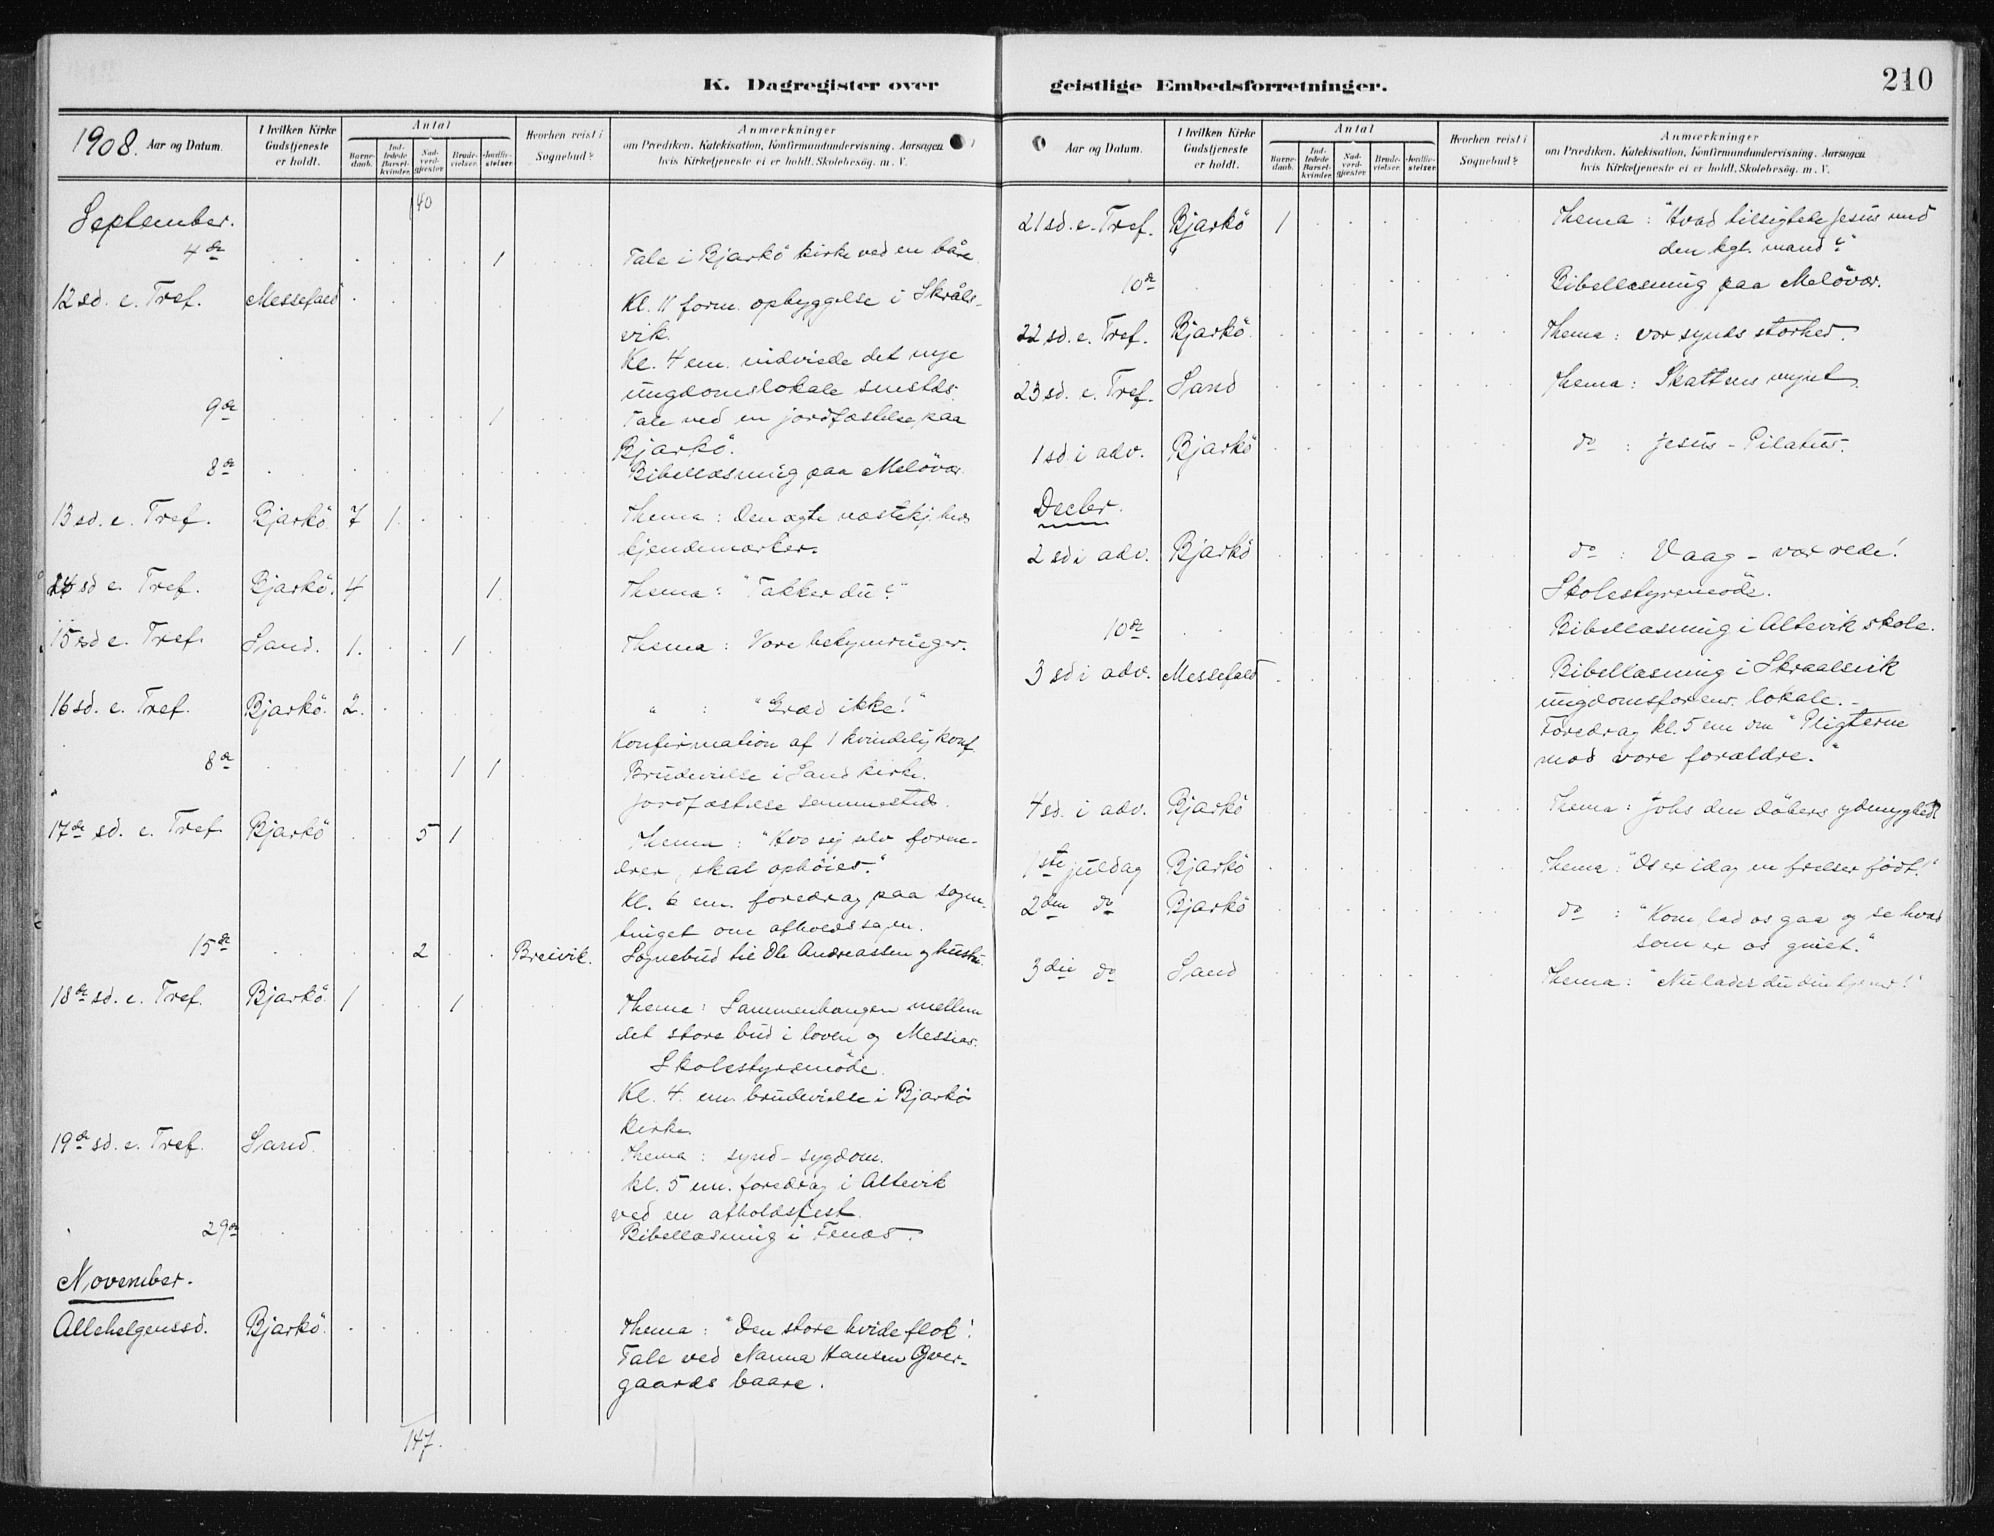 K. Dagregister over
1908. Aar og Datum.
I hvilken Kirke Gudstjeneste er holdt.
Antal
Barnedaab.
Indledede Barselkvinder.
Nadverdgjæster.
Brudevielser.
Jordfæstelser.
Hvorhen reist i Sognebud?
Anmærkninger
om Prædiken. Katekisation, Konfirmandundervisning. Aarsagen
hvis Kirketjeneste ei er holdt. Skolebesøg. m. V.
140
September.
4de 1 Tale i Bjarkö kirke ved en båre
12 sd. e. Tref. Messefald Kl. 11 form. opbyggelse i Skråls-
vik.
Kl. 4 em. indviede det nye
ungdomslokale smstds.
9de 1 Tale ved en jordfæstelse paa
Bjarkö.
8de Bibellæsning paa Melövær.
13 sd. e. Tref. Bjarkö 7 1. Thema: Den ægte næstekj.heds
kjendemærker.
14 sd e. Tref. Bjarkö. 4 1. Thema: "Takker du?"
15 sd e. Tref. Sand. 1. 1 Thema: Vore bekymringer.
16 sd. e. Tref. Bjarkö. 2. " : "Græd ikke!"
Konfirmation af 1 kvindelig konf.
8de 1 1 Brudevielse i Sand kirke.
Jordfæstelse sammesteds.
17de sd. e. Tref. Bjarkö 5 1 Thema: "Hvo sig selv forne-
drer, skal ophöies."
Kl. 6 em. foredrag paa sogn-
tinget om afholdssagen.
15de 2 Breivik. Sognebud til Ole Andreassen og hustru.
18de sd. e. Tref. Bjarkö. 1 1 Thema: Sammenhængen mellem
det store bud i loven og Messias.
Skolestyremöde.
Kl. 4. em. brudevielse i Bjarkö
kirke.
19de sd. e. Tref. Sand. Thema: synd - sygdom.
kl. 5 em. foredrag i Altevik
ved en afholdsfest.
29de Bibellæsning i Fenes.
November.
Allehelgenssd. Bjarkö. Thema: "Den store hvide flok".
Tale ved Nanna Hansen Över-
gaards baare.
147.
geistlige Embedsforretninger.
210
Aar og Datum.
I hvilken Kirke Gudstjeneste er holdt.
Antal
Barnedaab.
Indledede Barselkvinder.
Nadverdgjæster.
Brudevielser.
Jordfæstelser.
Hvorhen reist i Sognebud?
Anmærkninger
om Prædiken. Katekisation, Konfirmandundervisning. Aarsagen
hvis Kirketjeneste ei er holdt. Skolebesøg. m. V.
21 sd. e. Tref. Bjarkö 1 Thema: "Hvad tilsigtede Jesus med
den kgl. mand?"
10de Bibellæsning paa Melövær.
22 sd. e. Tref. Bjarkö. Thema: vor synds storhed.
23 sd. e. Tref. Sand Thema: Skattens mynt.
1 sd. i adv. Bjarkö do : Jesus - Pilatus.
Decbr.
2 sd i adv. Bjarkö do : Vaag - vær rede!
Skolestyremöde.
10de Bibellæsning i Altevik skole.
3 sd i adv. Messefald Bibellæsning i Skraalsvik
ungdomsforens. lokale. -
Foredrag kl. 5 em om "Pligterne
mod vore forældre."
4 sd. i adv. Bjarkö Thema: Johs den döbers ydmyghed
1ste juldag Bjarkö Thema: "Os er idag en frelser födt!"
2den do Bjarkö do : "Kom, lad os gaa og se hvad
som er os
3die do Sand Thema: "Nu lader du din tjener!"